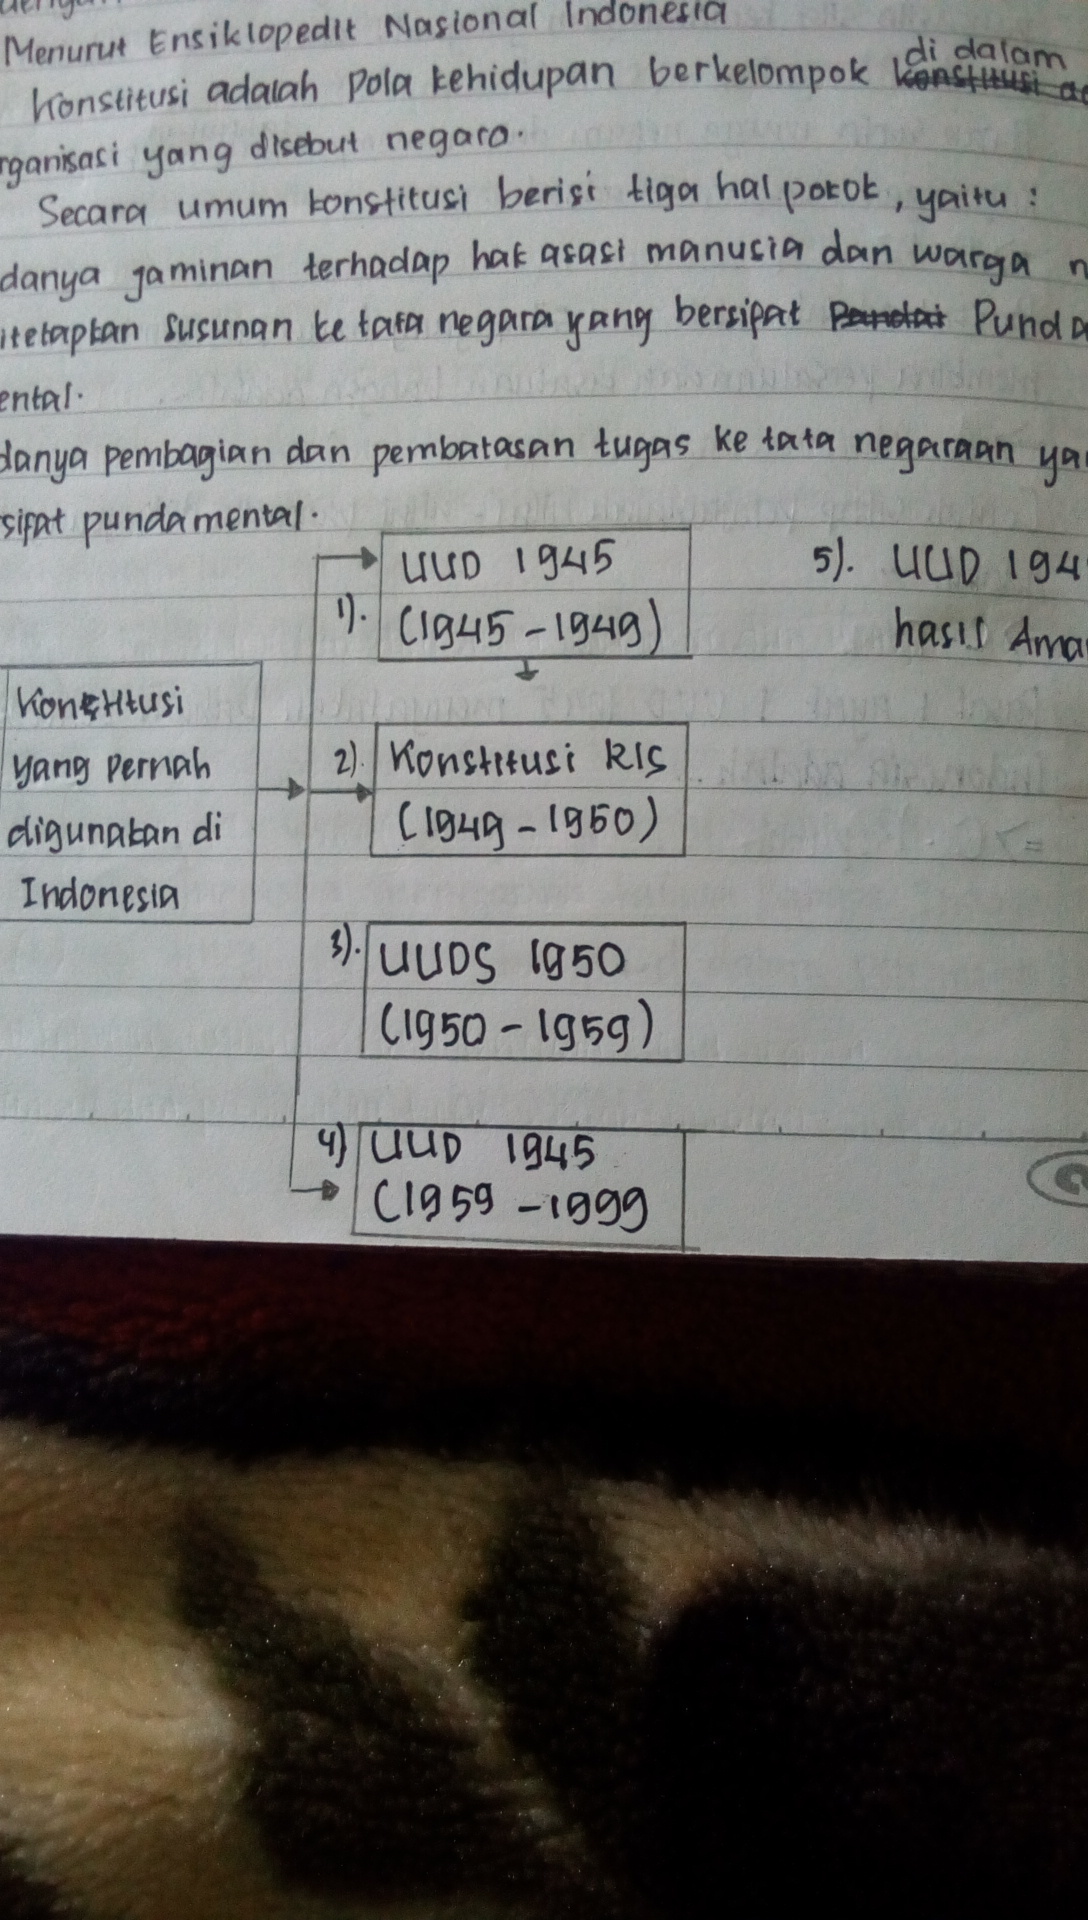 Menurut Ensiklopedit Nasional Indonesia
Konstitusi adalah Pola kehidupan berkelompok di dalam
rganisasi yang disebut negara.
Secara umum konstitusi berisi tiga hal pokok, yaitu :
danya jaminan terhadap hak asasi manusia dan warga n
itetapkan susunan ke tata negara yang bersipat Punda
ental.
danya pembagian dan pembatasan tugas ke tata negaraan ya
sipat pundamental.
Konstitusi
yang pernah
digunakan di
Indonesia
1). UUD 1945
(1945 - 1949)
2). Konstitusi RIS
(1949 - 1950)
3). UUDS 1950
(1950 - 1959)
4) UUD 1945
(1959 - 1999
5). UUD 194
hasil Ama